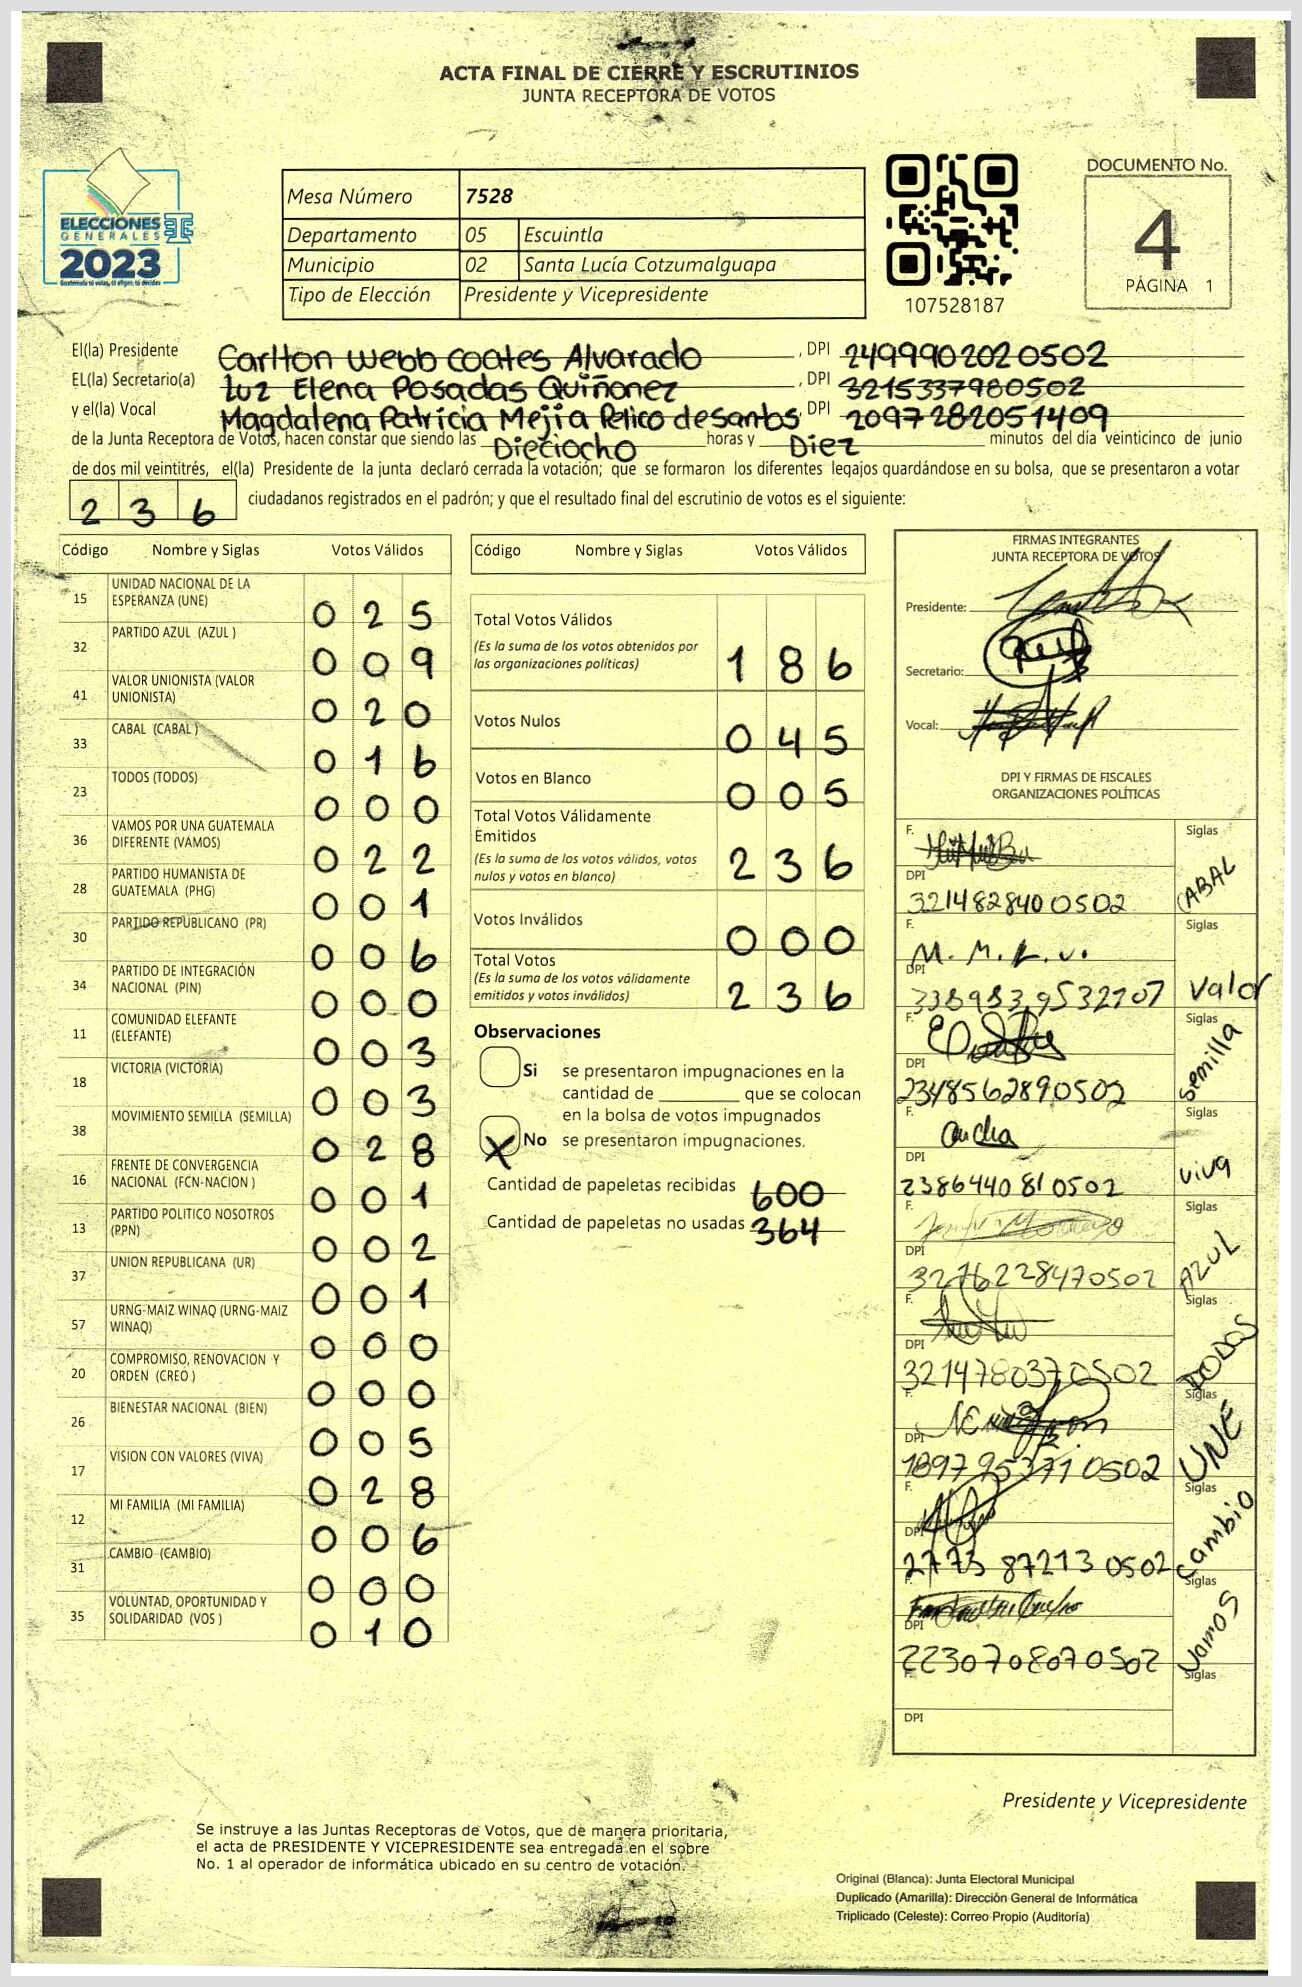 ACTA FINAL DE CIERRE Y ESCRUTINIOS
JUNTA RECEPTORA DE VOTOS
ELECCIONES
GENERALES
2023
Guatemala tú votas, tú eliges, tú decides
Mesa Número 7528
Departamento 05 Escuintla
Municipio 02 Santa Lucía Cotzumalguapa
Tipo de Elección Presidente y Vicepresidente
107528187
DOCUMENTO No.
4
PÁGINA 1
El(la) Presidente Carlton Webb Coates Alvarado, DPI 2499902020502
EL(la) Secretario(a) Luz Elena Posadas Quiñonez, DPI 3215337980502
y el(la) Vocal Magdalena Patricia Mejia Pelico de santos, DPI 2097282051409
de la Junta Receptora de Votos, hacen constar que siendo las Dieciocho horas y Diez minutos del día veinticinco de junio
de dos mil veintitrés, el(la) Presidente de la junta declaró cerrada la votación; que se formaron los diferentes legajos guardándose en su bolsa, que se presentaron a votar
236 ciudadanos registrados en el padrón; y que el resultado final del escrutinio de votos es el siguiente:
Código Nombre y Siglas Votos Válidos
15 UNIDAD NACIONAL DE LA ESPERANZA (UNE) 025
32 PARTIDO AZUL (AZUL ) 009
41 VALOR UNIONISTA (VALOR UNIONISTA) 020
33 CABAL (CABAL ) 016
23 TODOS (TODOS) 000
36 VAMOS POR UNA GUATEMALA DIFERENTE (VAMOS) 022
28 PARTIDO HUMANISTA DE GUATEMALA (PHG) 001
30 PARTIDO REPUBLICANO (PR) 006
34 PARTIDO DE INTEGRACIÓN NACIONAL (PIN) 000
11 COMUNIDAD ELEFANTE (ELEFANTE) 003
18 VICTORIA (VICTORIA) 003
38 MOVIMIENTO SEMILLA (SEMILLA) 028
16 FRENTE DE CONVERGENCIA NACIONAL (FCN-NACION ) 001
13 PARTIDO POLITICO NOSOTROS (PPN) 002
37 UNION REPUBLICANA (UR) 001
57 URNG-MAIZ WINAQ (URNG-MAIZ WINAQ) 000
20 COMPROMISO, RENOVACION Y ORDEN (CREO ) 000
26 BIENESTAR NACIONAL (BIEN) 005
17 VISION CON VALORES (VIVA) 028
12 MI FAMILIA (MI FAMILIA) 006
31 CAMBIO (CAMBIO) 000
35 VOLUNTAD, OPORTUNIDAD Y SOLIDARIDAD (VOS ) 010
Código Nombre y Siglas Votos Válidos
Total Votos Válidos 186
(Es la suma de los votos obtenidos por
las organizaciones políticas)
Votos Nulos 045
Votos en Blanco 005
Total Votos Válidamente
Emitidos 236
(Es la suma de los votos válidos, votos
nulos y votos en blanco)
Votos Inválidos 000
Total Votos 236
(Es la suma de los votos válidamente
emitidos y votos inválidos)
Observaciones
Si se presentaron impugnaciones en la
cantidad de ________ que se colocan
en la bolsa de votos impugnados
X No se presentaron impugnaciones.
Cantidad de papeletas recibidas 600
Cantidad de papeletas no usadas 364
FIRMAS INTEGRANTES
JUNTA RECEPTORA DE VOTOS
Presidente:
Secretario:
Vocal:
DPI Y FIRMAS DE FISCALES
ORGANIZACIONES POLÍTICAS
F. Siglas
DPI 3214828400502 CABAL
F. M. M. L. v. Siglas
DPI 3389839532707 Valor
F. Siglas
DPI 2348562890502 Semilla
F. Siglas
DPI 2386440810502 viva
F. Siglas
DPI 3276228470502 AZUL
F. Siglas
DPI 3214780370502 TODOS
F. Siglas
DPI 1897953710502 UNE
F. Siglas
DPI 2773872130502 cambio
F. Siglas
DPI 2230708070502 vamos
F. Siglas
DPI
Presidente y Vicepresidente
Se instruye a las Juntas Receptoras de Votos, que de manera prioritaria,
el acta de PRESIDENTE Y VICEPRESIDENTE sea entregada en el sobre
No. 1 al operador de informática ubicado en su centro de votación.
Original (Blanca): Junta Electoral Municipal
Duplicado (Amarilla): Dirección General de Informática
Triplicado (Celeste): Correo Propio (Auditoría)